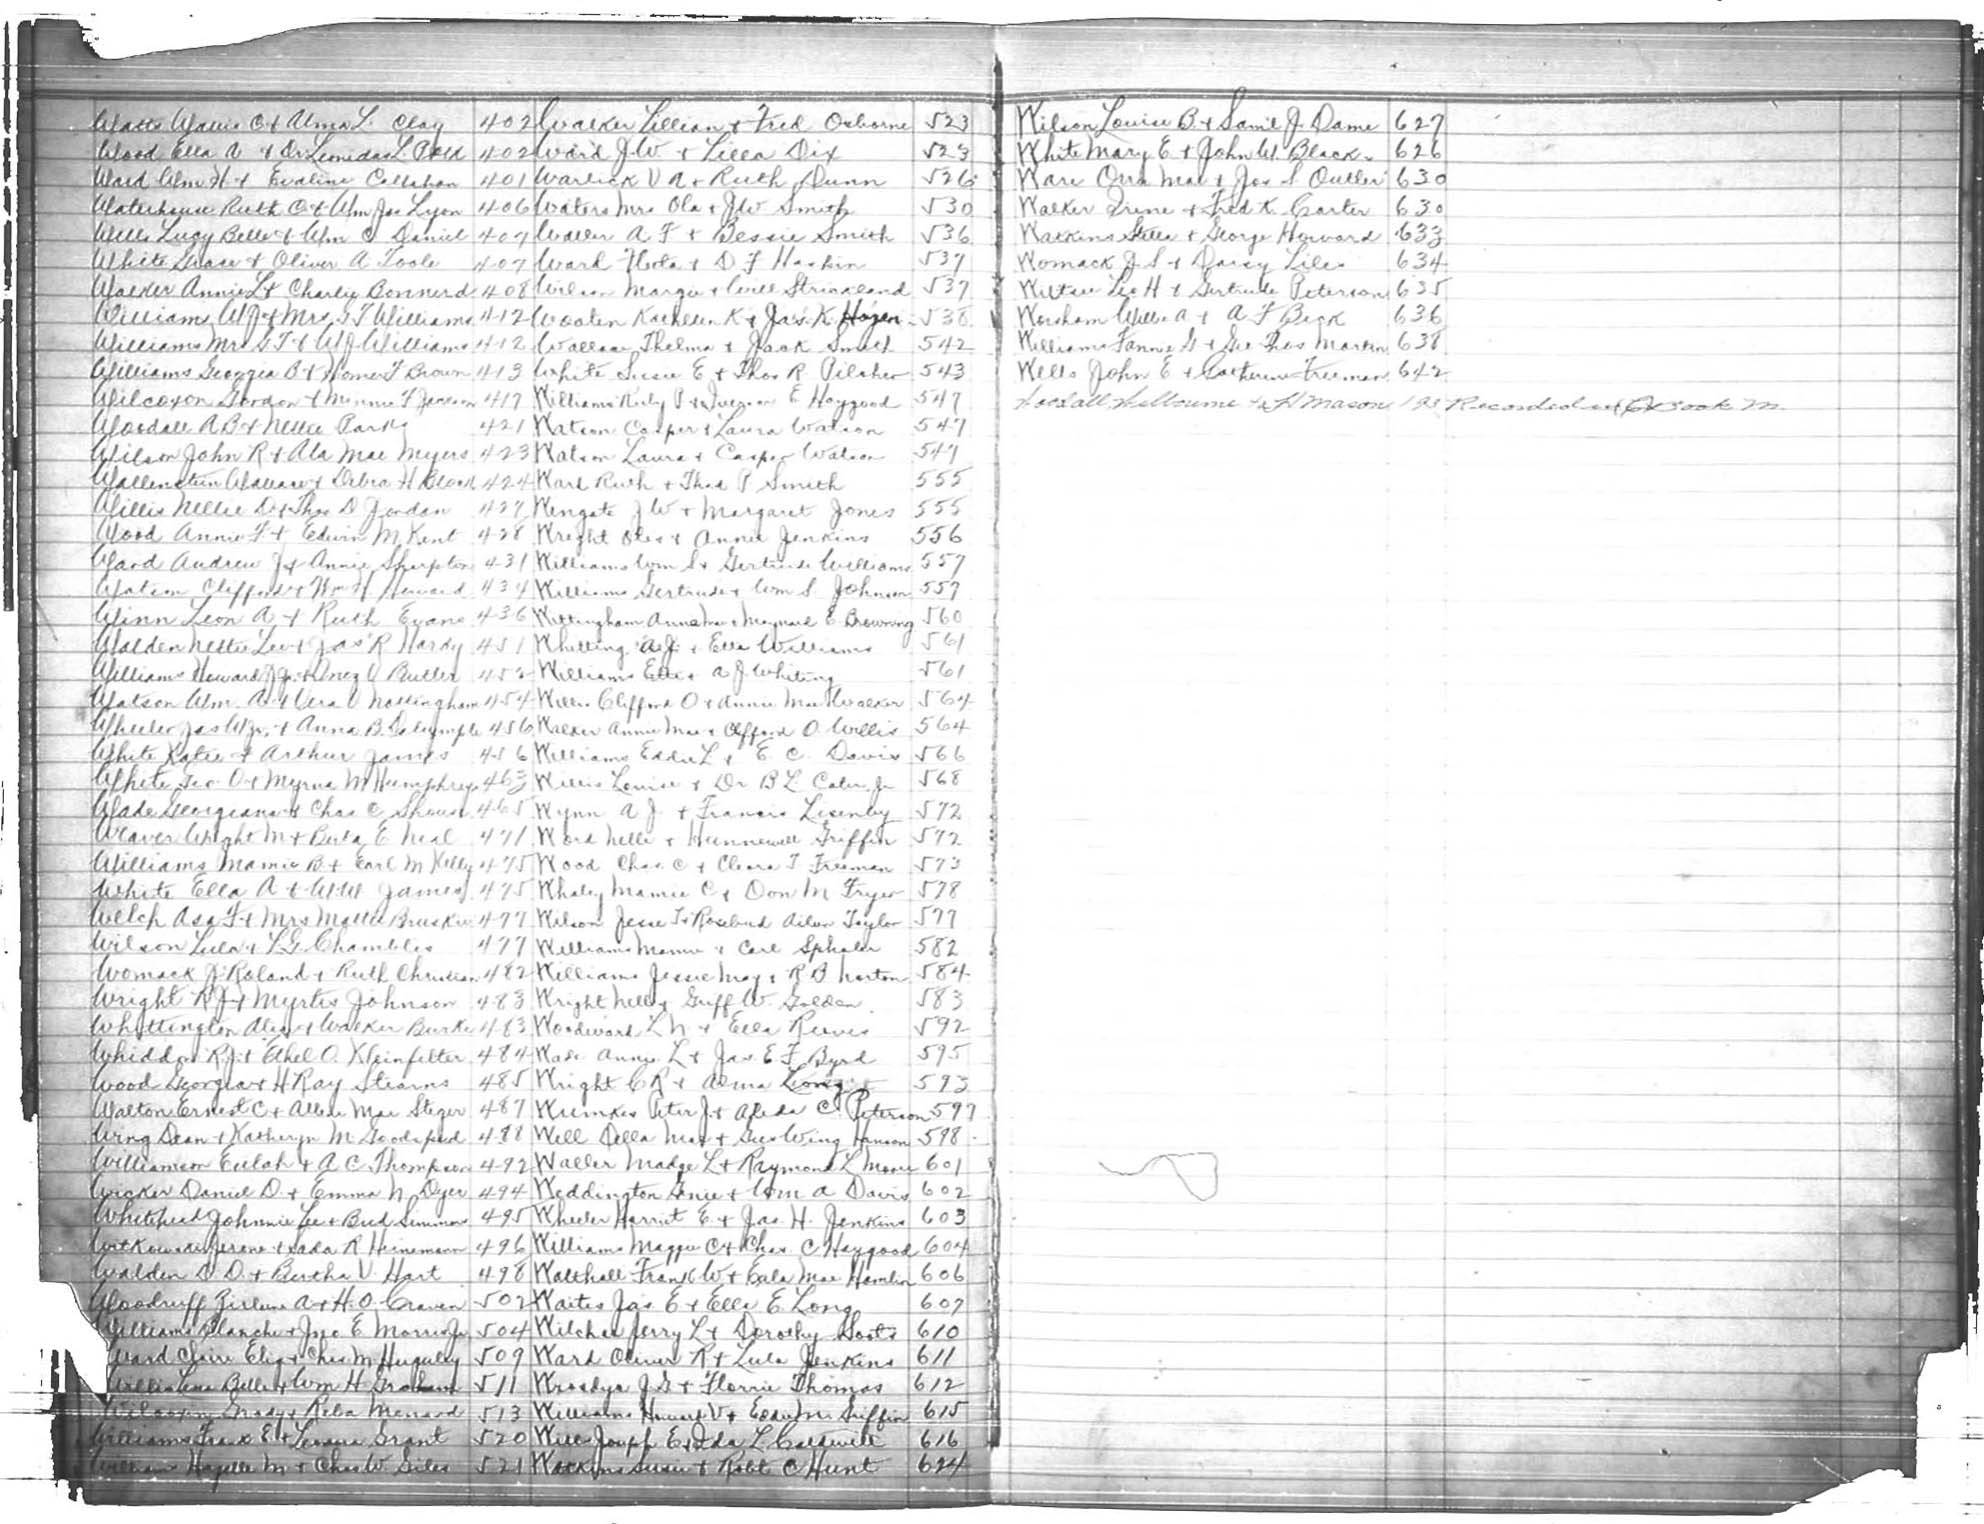 Watts Wallis C + Alma L. Clay 402
Wood Ella A + Dr Leonidas L. 402
Ward Wm H + Evaline Callahan 401
Waterhouse Ruth C + Wm Jas Lyon 406
Wells Lucy Belle + Wm C Daniel 407
White Grace + Oliver A Toole 407
Walker Annie L + Charlie Bonnerd 408
Williams W J + Mrs G T Williams 412
Williams Mrs G T + W J Williams 412
Williams Georgia B + Homer T Brown 413
Wilcoxon Gordon + Minnie F Jackson 417
Woodall A B + Nellie Parks 421
Wilson John R + Ala Mae Myers 423
Wallenstein + H Blood 424
Willis Nellie D + Thos D Jordan 427
Wood Annie F + Edwin M Kent 428
Ward Andrew J + Annie Sharpton 431
Watson Clifford + Wm H Howard 434
Winn Leon A + Ruth Evans 436
Walden Nettie Lee + Jas R Hardy 451
Williams Howard J Jr + Inez V Butler
Watson Wm. A + Vera V Nottingham 454
Wheeler Jas W Jr. + Anna B. Dalrymple 456
White Katie + Arthur James 456
White Geo. O + Myrna M Humphrey 463
Wade Georgeana + Chas C 465
Weaver Wright M + Beula E Neal 471
Williams Mamie B + Earl M Kelly 475
White Ella A + W W James 475
Welch Asa F + Mrs Mattie 477
Wilson Lula + L. G. Chambles 477
Womack J. Roland + Ruth Christian 482
Wright R J + Myrtis Johnson 483
Whittington + Walker Burke 483
Whiddon R J + Ethel O. Kleinfelter 484
Wood Georgia + H Ray Stearns 485
Walton Ernest C + Allene Mae Steger 487
Wing Dean + Katheryn M. Goodspeed 488
Williamson Eulah + A C Thompson 492
Wicker Daniel D. + Emma N. Dyer 494
Whitehead Johnnie Lee + Bud Simmons 495
Witkowski Jerome + Sada R Heinemann 496
Walden D D. + Bertha V. Hart 498
Woodruff A + H. O. Craven 502
Williams Blanche + Jno E Morris Jr 504
Ward Claire Eliz + Chas M Huguley 509
Willis Lena Belle + Wm H Graham 511
Wilcoxon Grady + Reba Menard 513
Williams Frank E + Grant 520
Hazelle M + Chas W. Giles 521
Walker Lillian + Fred Osborne 523
Ward J. W. + Lilla Dix 523
Warlick V A + Ruth Dunn 526
Waters Mrs Ola + J W Smith 530
Waller A F + Bessie Smith 536
Ward Flota + D F Haskin 537
Wilson Margie + Will Strickland 537
Wooten Kathleen K + Jas. K. Hogen 538
Wallace Thelma + Jack Smith 542
White Susie E + Thos R Pilcher 543
Williams Ruby P + E Haygood 547
Watson Casper + Laura Watson 547
Watson Laura + Casper Watson 547
Ward Ruth + Thad P Smith 555
Wengate J W + Margaret Jones 555
Wright Otis + Annie Jenkins 556
Williams Wm S + Gertrude Williams 557
Williams Gertrude + Wm S. Johnson 557
Wittingham Anna Mae + Maynard E Browning 560
Whitting A. J. + Etta Williams 561
Williams Etta + A J Whiting 561
Willis Clifford O + Annie Mae Walker 564
Walker Annie Mae + Clifford O. Willis 564
Williams Eddie L + E. C. Davis 566
Willis Louise + Dr B L Cater Jr 568
Wynn A J + Francis Lisenby 572
Word Nelle + Hunnewell Griffin 572
Wood Chas. C + Cleora T Freeman 573
Whaley Mamie C + Don M Fryer 578
Wilson Jesse T + Rosebud Aileen Taylor 577
Williams Mamie + Carl 582
Williams Jessie May + R B Norton 584
Wright Nelle + Griff W. Golden 583
Woodward L N + Ella Reeves 592
Wade Annie L + Jas E F Byrd 595
Wright C R + Alma Long 593
Wrinkes Peter J + Aleda C. Peterson 597
Well Della Mae + Gee Wing Hanson 598
Waller Madge L + Raymond L Moore 601
Weddington Genie + Wm A Davis 602
Wheeler Harriet E. + Jas. H. Jenkins 603
Williams Maggie C + Chas. C Haygood 604
Walthall Frank W + Eula Mae Hamlin 606
Waites Jas E + Ella E Long 607
Wilcher Jerry L + Dorothy Goots 610
Ward Oliver R + Lula Jenkins 611
J G + Florrie Thomas 612
Williams Howard V + M. Griffin 615
Wills Joseph E + Ida L Caldwell 616
Watkins Susie + Robt C Hunt 624
Wilson Louise B. + Saml J. Dame 627
White Mary E + John W. Black 626
Ware Orra Mae + Jas S Outler 630
Walker Irene + Fred K. Carter 630
Watkins Stella + George Howard 633
Womack J S + Daisy Liles 634
Leo H + Gertrude Peterson 635
Worsham Willie A + A F Beck 636
Williams Fannie G + Geo Thos Martin 638
Wells John E + Catherine Freeman 642
Woodall Melbourne + Mason 193 Recorded in Book M.